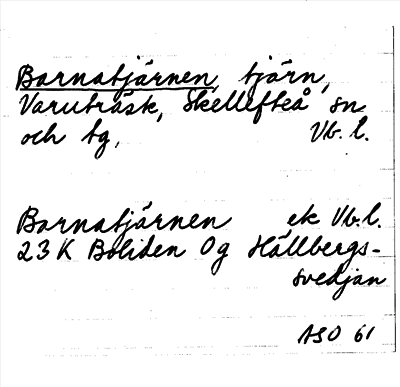 Barnatjärnen, tjärn,
Varuträsk, Skellefteå sn
och tg, Vb. l.
Barnatjärnen ek Vb. l.
23 K Boliden 0g Hällbergs-
svedjan
ASO 61